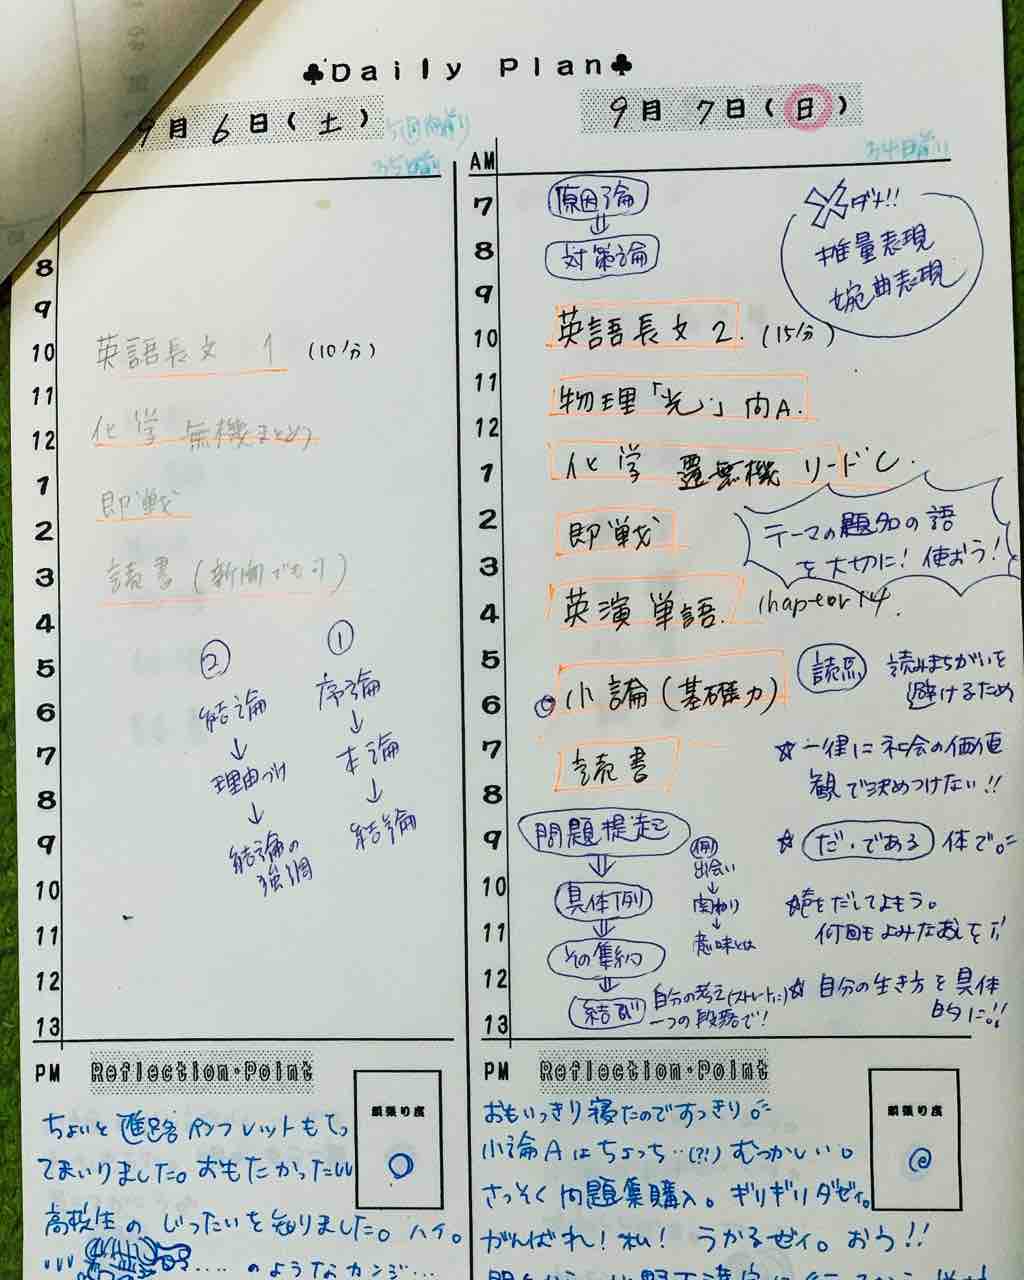 ♣Daily Plan♣
9月 6日(土)
あ5日前
8
9
10
11
12
1
2
3
4
5
6
7
8
9
10
11
12
13
英語長文 1 (10分)
化学 無機まとめ
即戦
読書(新聞でも可)
①
序論
↓
本論
↓
結論
②
結論
↓
理由づけ
↓
結論の
強調
PM
Reflection・Point
頑張り度
ちょいと進路パンフレットもらっ
てまいりました。おもたかった
高校生のじったいを知りました。ハイ。
のようなカンジ…
9月 7日(日)
あ4日前
AM
7
8
9
10
11
12
1
2
3
4
5
6
7
8
9
10
11
12
13
原因論
⇓
対策論
ダメ!!
推量表現
婉曲表現
英語長文 2. (15分)
物理「光」問A.
化学 無機 リードC.
即戦
テーマの題名の語
を大切に!使おう!
英演単語. chapter 14.
小論(基礎力)
読点
読みまちがいを
避けるため
読書
☆一律に社会の価値
観で決めつけない!!
問題提起
⇓
具体例
⇓
その集約
⇓
結び
自分の考え(ストレートに)
一つの段落で!
例
出会い
↓
関わり
↓
意味とは
☆だ・である体で。
☆声をだしてよもう。
何回もよみなおしを
☆自分の生き方を具体
的に!!
PM
Reflection・Point
頑張り度
おもいっきり寝たのですっきり。
小論Aはちょっち‥(??)むつかしい。
さっそく問題集購入。ギリギリダゼィ。
がんばれ!私!うかるゼィ。おう!!